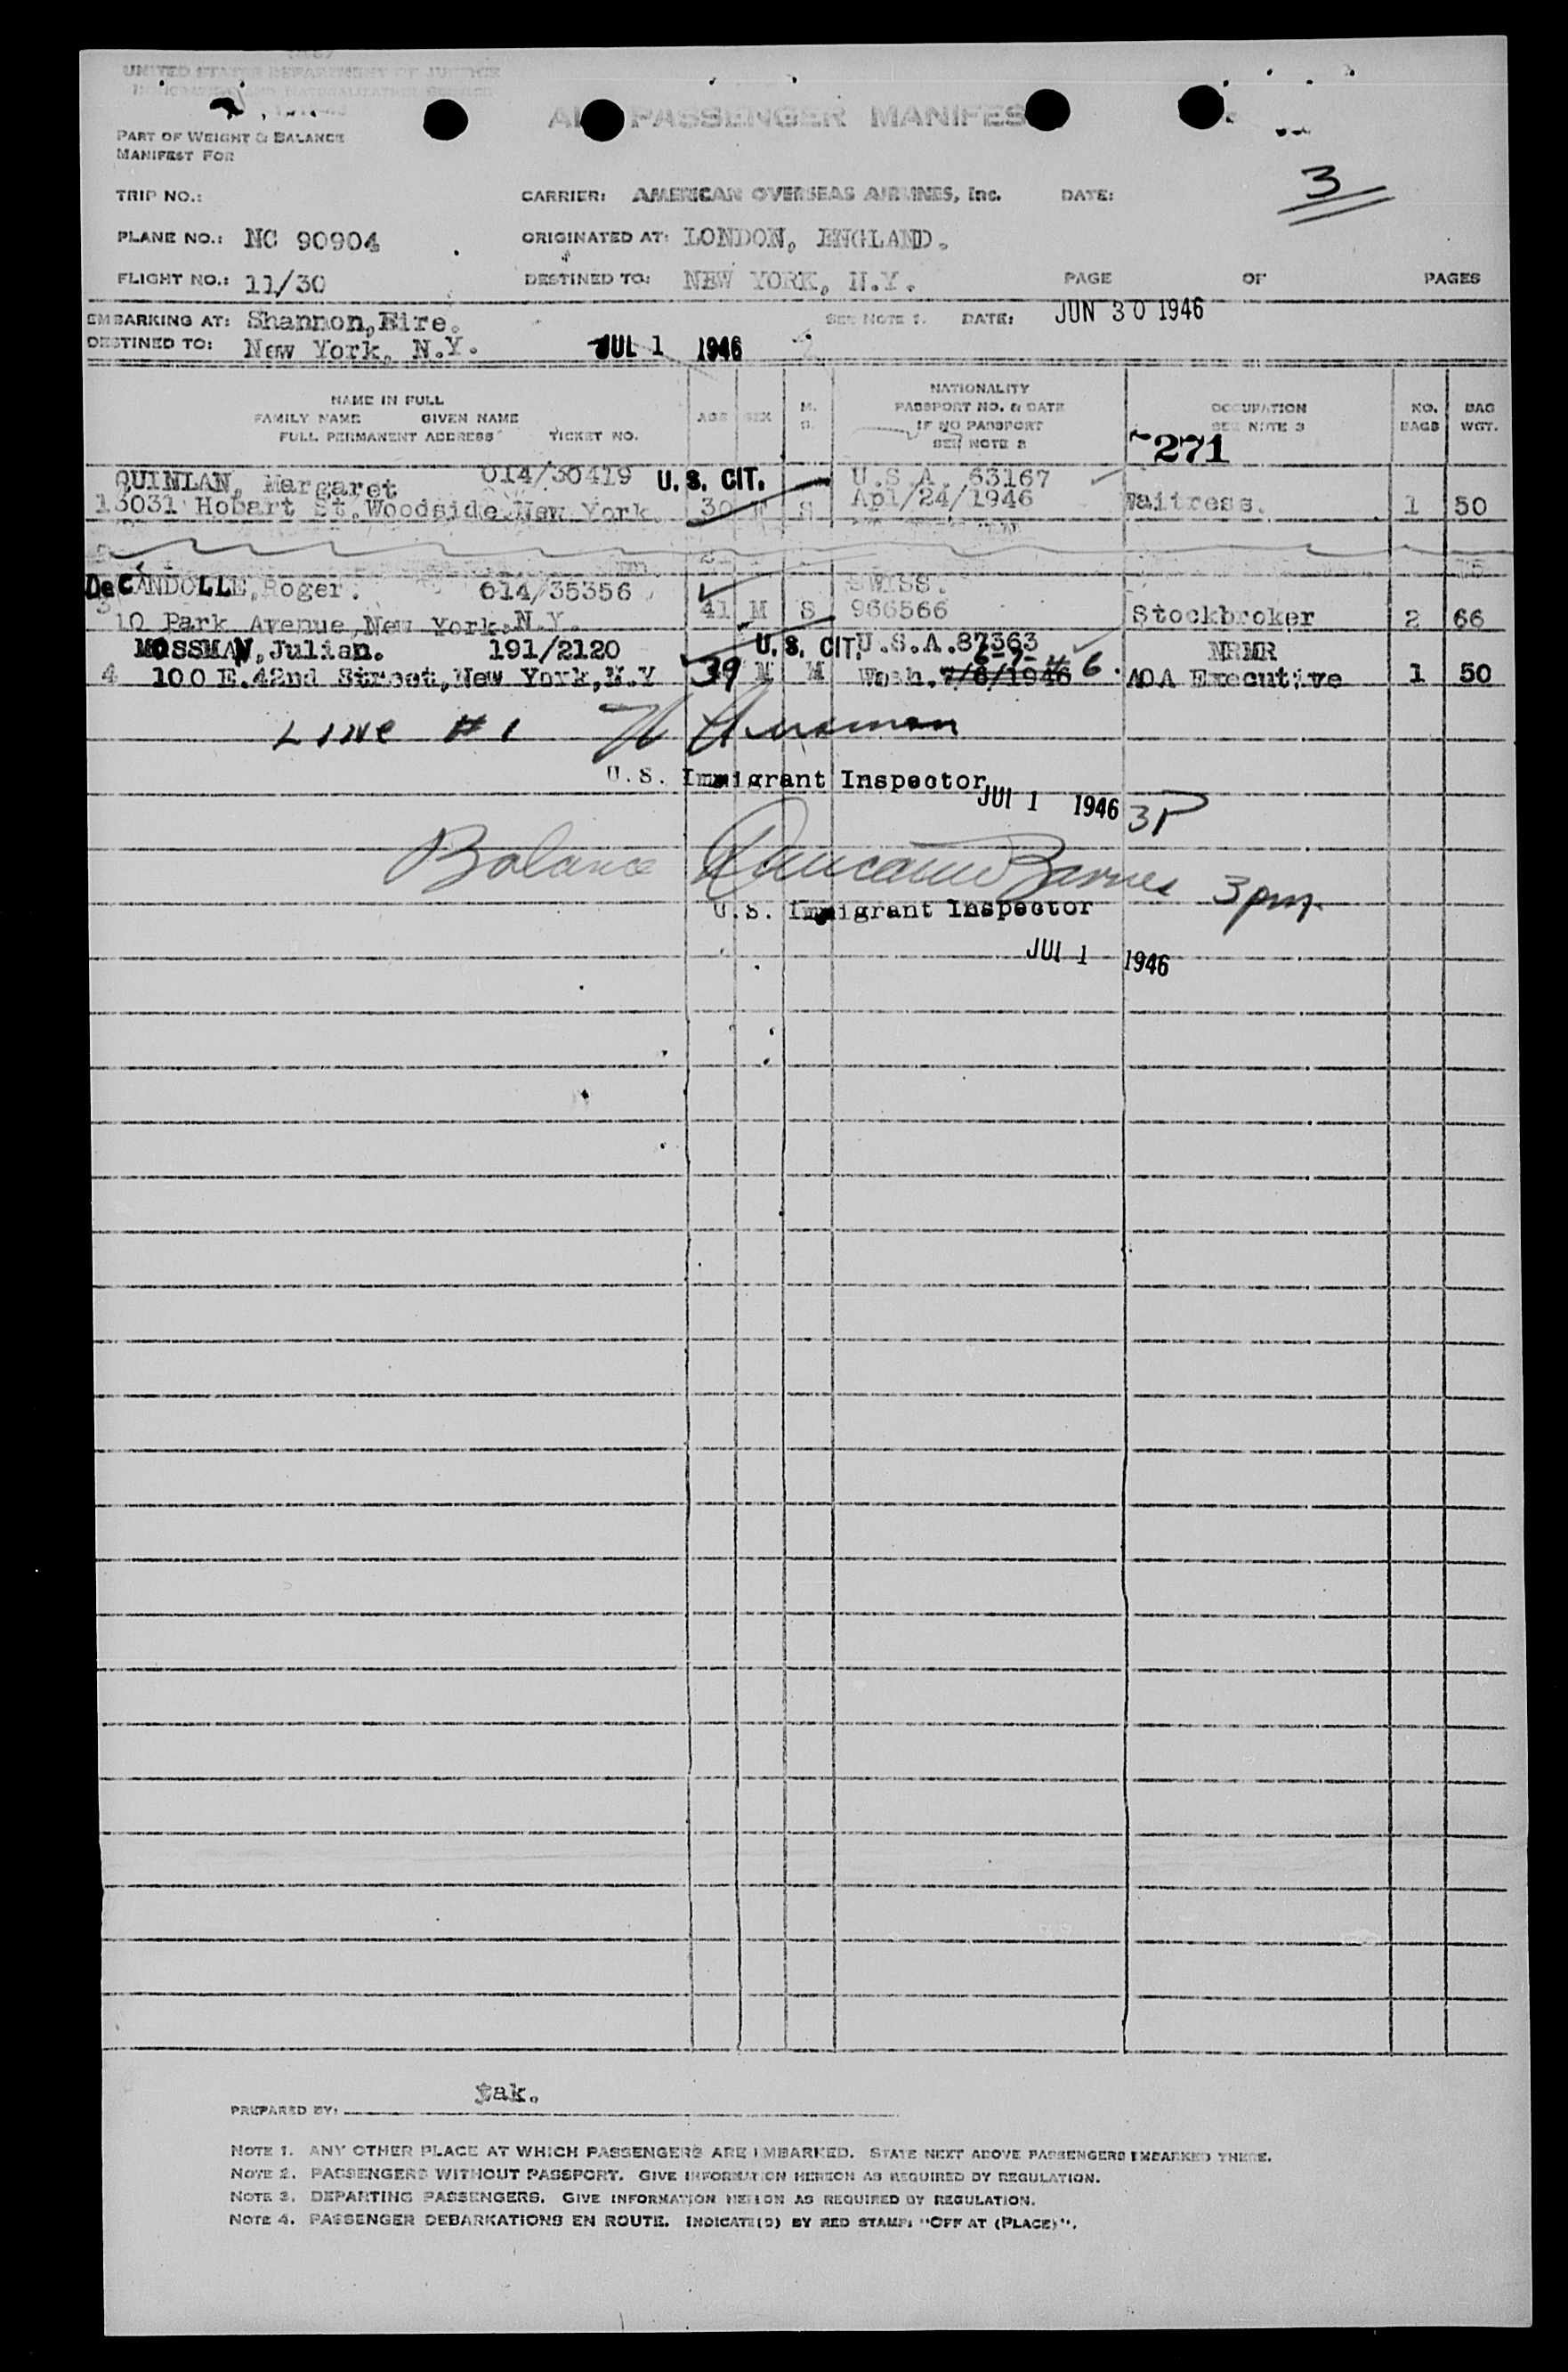 UNITED STATES DEPARTMENT OF JUSTICE
IMMIGRATION AND NATURALIZATION SERVICE
PASSENGER MANIFES
PART OF WEIGHT & BALANCE
MANIFEST FOR
3
TRIP NO.: CARRIER: AMERICAN OVERSEAS AIRLINES, Inc. DATE:
PLANE NO.: NC 90904 ORIGINATED AT: LONDON, ENGLAND.
FLIGHT NO.: 11/30 DESTINED TO: NEW YORK, N.Y. PAGE OF PAGES
EMBARKING AT: Shannon,Eire. SEE NOTE 1. DATE: JUN 30 1946
DESTINED TO: New York, N.Y. JUL 1 1946
NAME IN FULL
FAMILY NAME GIVEN NAME
FULL PERMANENT ADDRESS TICKET NO.
AGE SEX M. S.
NATIONALITY
PASSPORT NO. & DATE
IF NO PASSPORT
SEE NOTE 2
OCCUPATION
SEE NOTE 3
NO. BAGS
BAG WGT.
271
QUINLAN, Margaret 014/30419 U.S. CIT. U.S.A. 63167
13031 Hobart St.Woodside.New York. 30 S Apl/24/1946 Waitress. 1 50
DeCANDOLLE,Roger. 014/35356 SWISS.
3 10 Park Avenue,New York.N.Y. 41 M S 966566 Stockbroker 2 66
MOSSMAN,Julian. 191/2120 U.S. CIT. U.S.A.87363 NRMR
4 100 E.42nd Street,New York,N.Y 39 M M Wash.7/6/1946 6-7-46. AOA Executive 1 50
LINE #1
U.S. Immigrant Inspector
JUL 1 1946 3P
Balance Duncan Barnes 3pm
U.S. Immigrant Inspector
JUL 1 1946
PREPARED BY: tak.
NOTE 1. ANY OTHER PLACE AT WHICH PASSENGERS ARE EMBARKED. STATE NEXT ABOVE PASSENGERS EMBARKED THERE.
NOTE 2. PASSENGERS WITHOUT PASSPORT. GIVE INFORMATION HEREON AS REQUIRED BY REGULATION.
NOTE 3. DEPARTING PASSENGERS. GIVE INFORMATION HEREON AS REQUIRED BY REGULATION.
NOTE 4. PASSENGER DEBARKATIONS EN ROUTE. INDICATE(D) BY RED STAMP: "OFF AT (PLACE)".